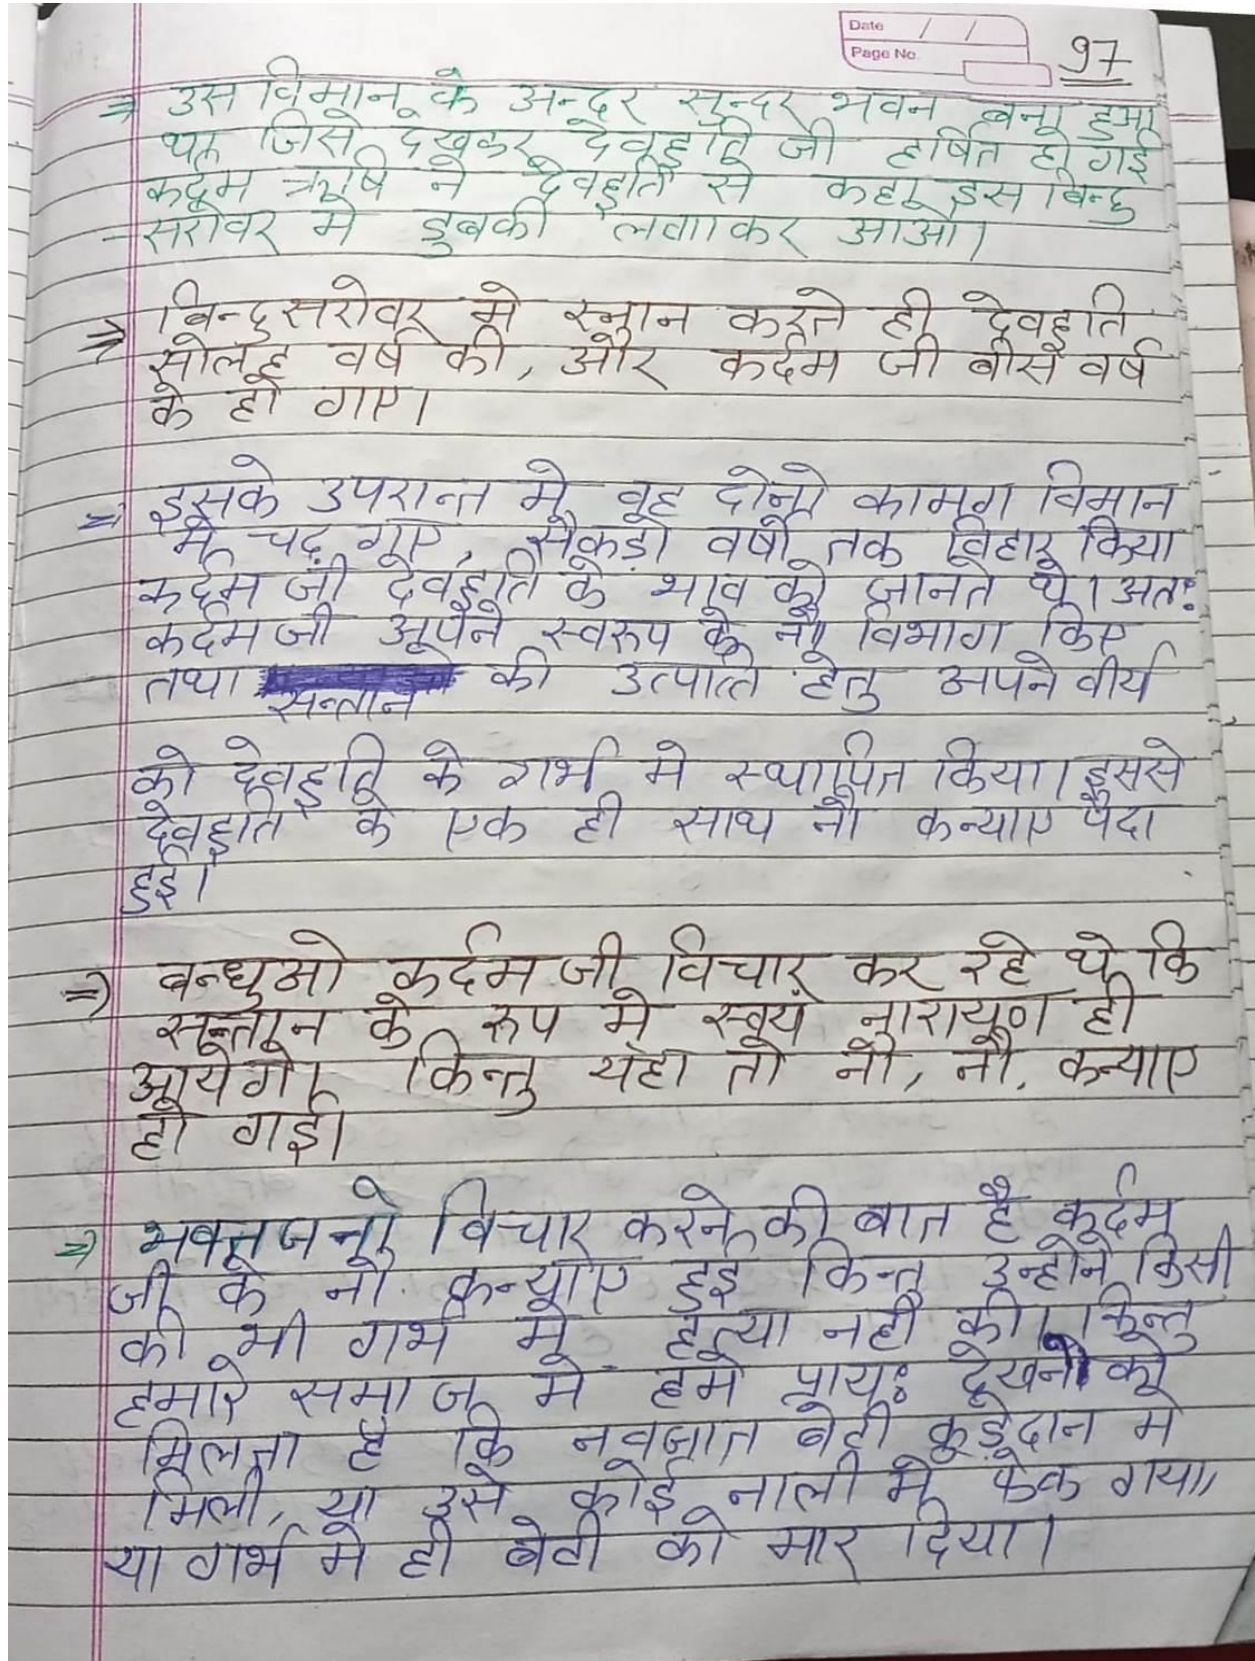 Date / /
Page No.
97
⇒ उस विमान के अन्दर सुन्दर भवन बना हुआ
था जिसे देखकर देवहुति जी हर्षित हो गई
कर्दम ऋषि ने देवहुति से कहा इस बिन्दु
सरोवर मे डुबकी लगाकर आओ।
⇒ बिन्दुसरोवर मे स्नान करते ही देवहुति
सोलह वर्ष की, और कर्दम जी बीस वर्ष
के हो गए।
⇒ इसके उपरान्त मे वह दोनो कामग विमान
मे चढ़ गए, सैकड़ो वर्षो तक विहार किया
कर्दम जी देवहुति के भाव को जानते थे। अतः
कर्दम जी अपने स्वरुप के नौ विभाग किए
तथा सन्तान की उत्पत्ति हेतु अपने वीर्य
को देवहुति के गर्भ मे स्थापित किया। इससे
देवहुति के एक ही साथ नौ कन्याए पैदा
हुई।
⇒ बन्धुओ कर्दम जी विचार कर रहे थे कि
सन्तान के रुप मे स्वयं नारायण ही
आयेगे। किन्तु यहा तो नौ, नौ, कन्याए
हो गई।
⇒ भक्तजनो विचार करने की बात है कर्दम
जी के नौ कन्याए हुई किन्तु उन्होने किसी
की भी गर्भ मे हत्या नही की। किन्तु
हमारे समाज मे हमे प्रायः देखने को
मिलता है कि नवजात बेटी कूड़ेदान मे
मिली, या उसे कोई नाली मे फेक गया,
या गर्भ मे ही बेटी को मार दिया।